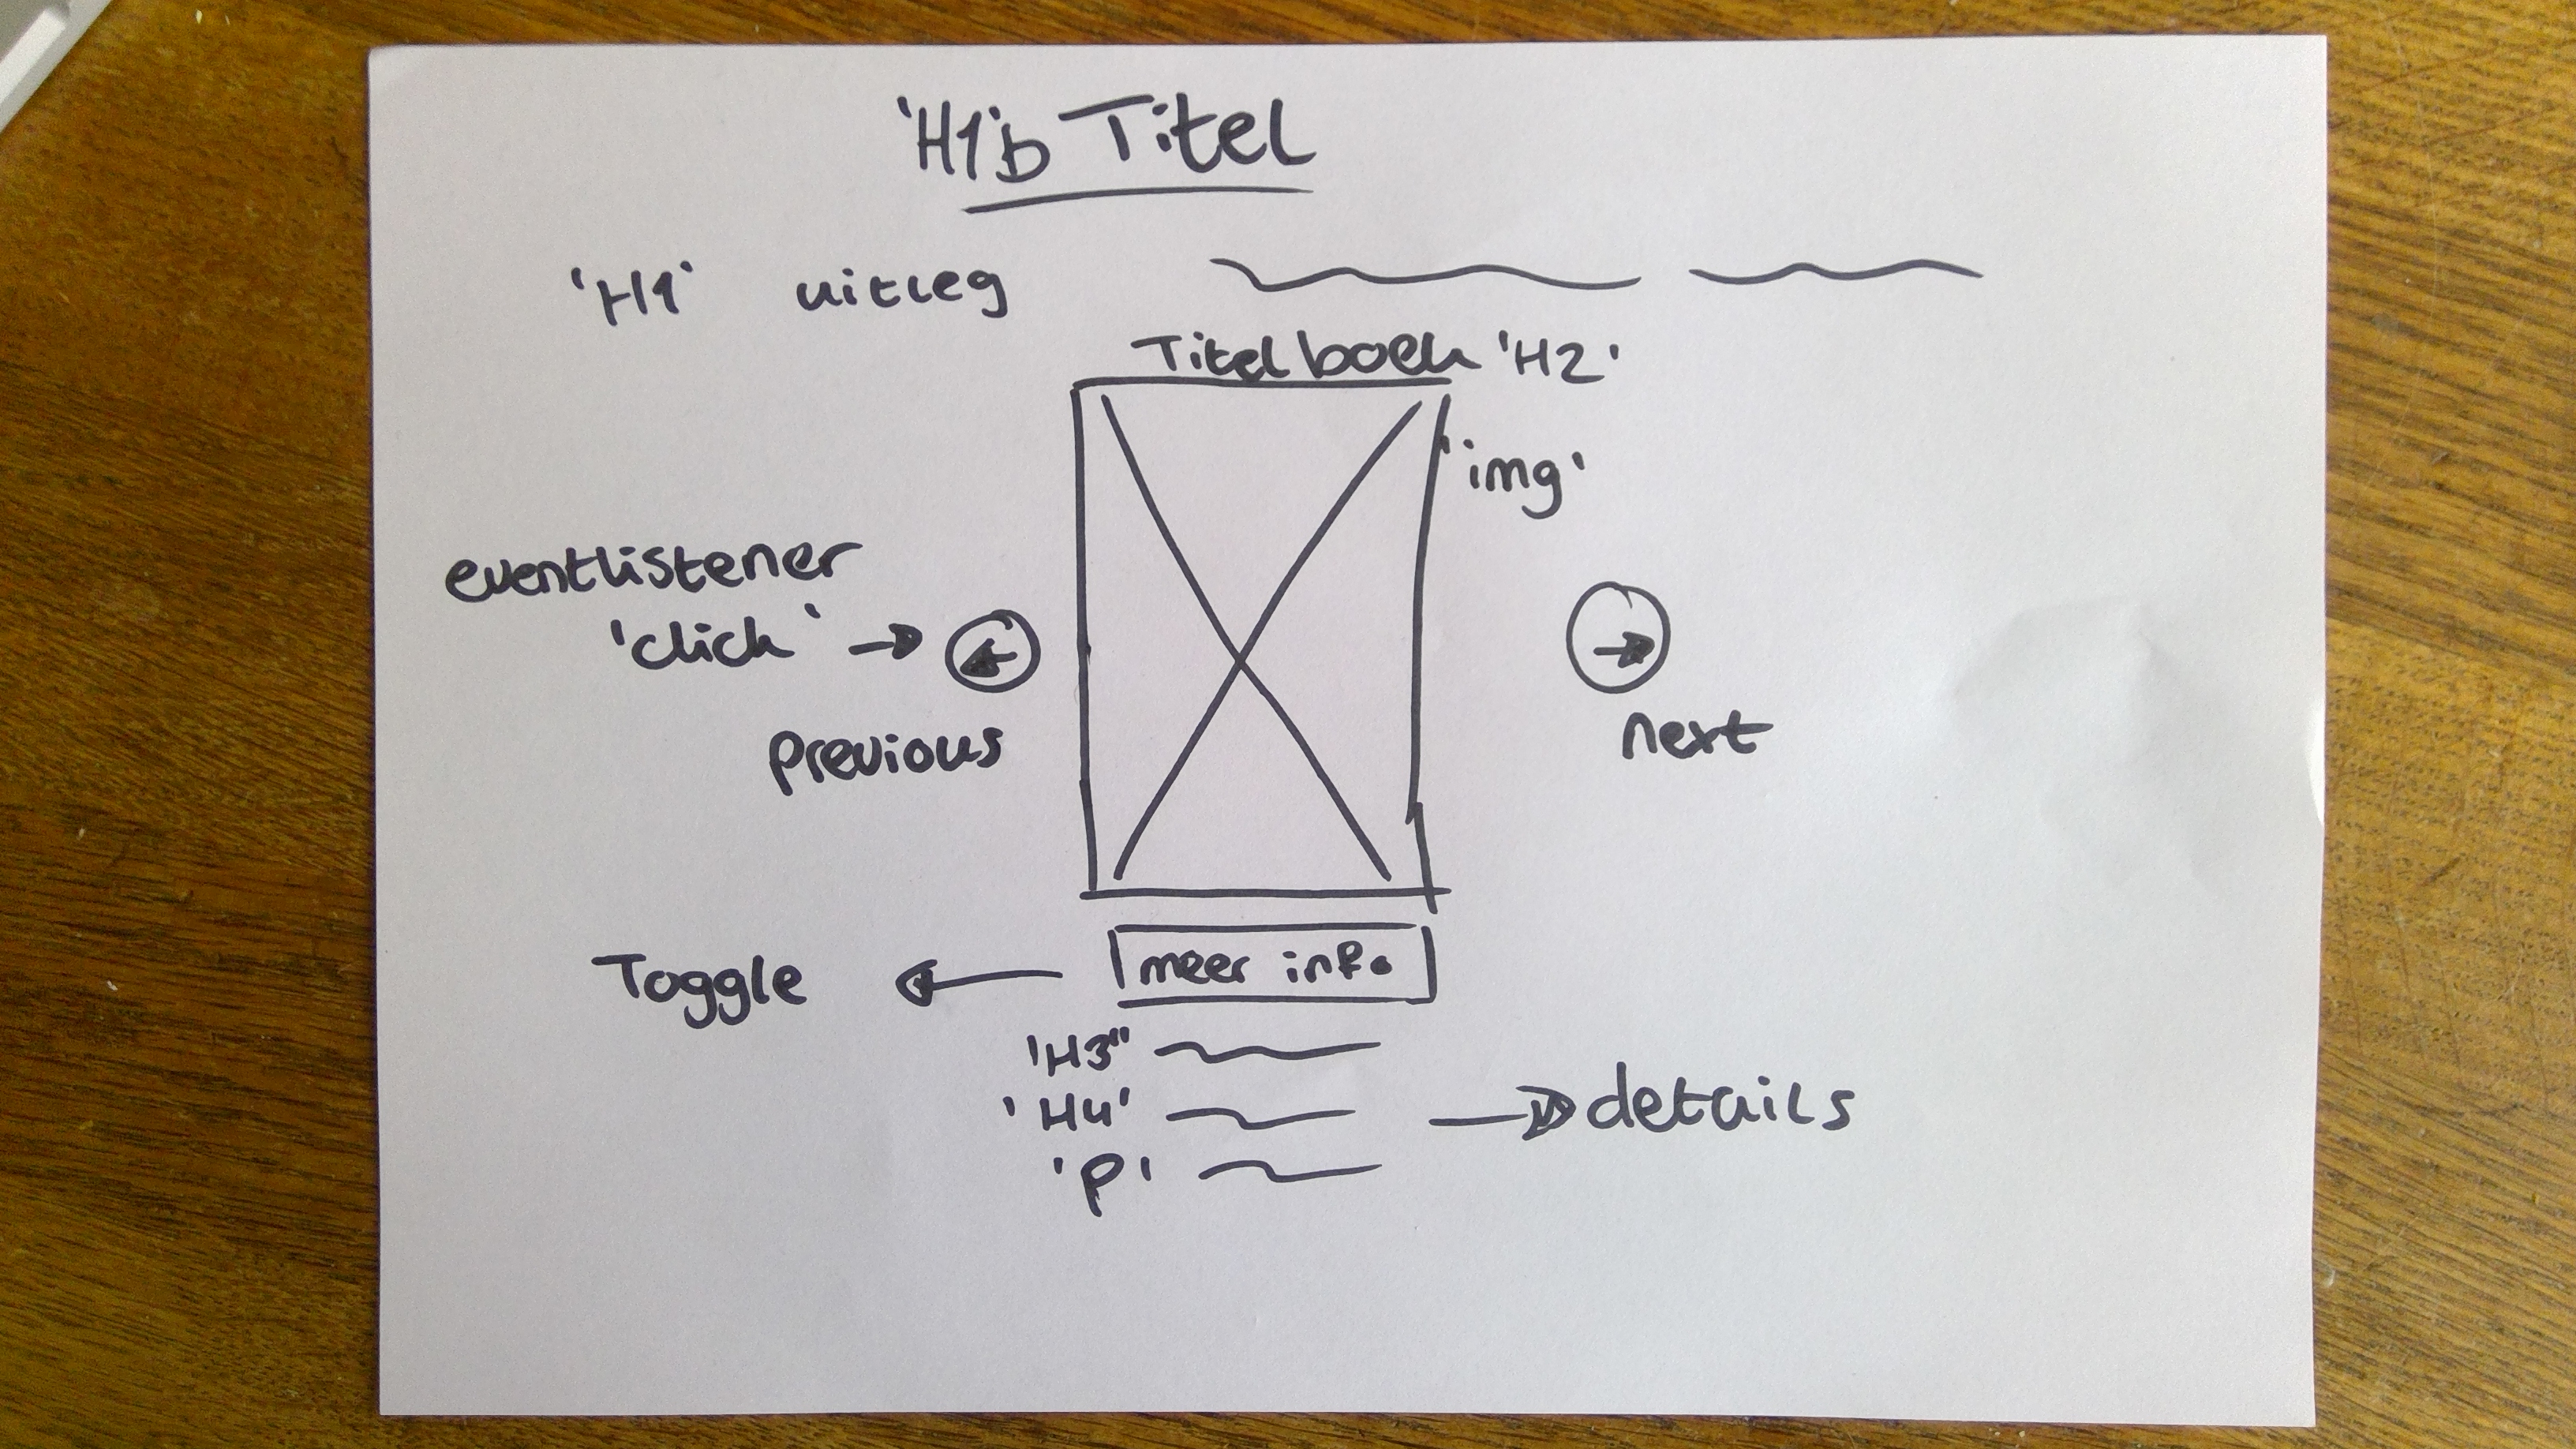 'H1'b Titel
'H1' uitleg
Titel boek 'H2'
'img'
eventlistener
'click'
previous
next
meer info
Toggle
'H3"
'H4'
details
'P'